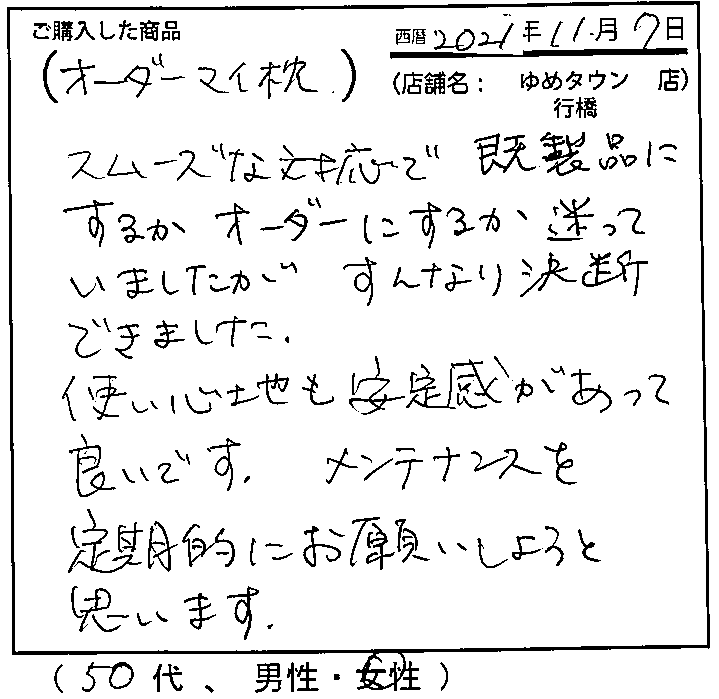 ご購入した商品
西暦 2021年11月7日
(オーダーマイ枕)
(店舗名： ゆめタウン 店)
行橋
スムーズな対応で 既製品に
するか オーダーにするか 迷って
いましたが すんなり決断
できました.
使い心地も安定感があって
良いです. メンテナンスを
定期的にお願いしようと
思います.
(50代、男性・女性)